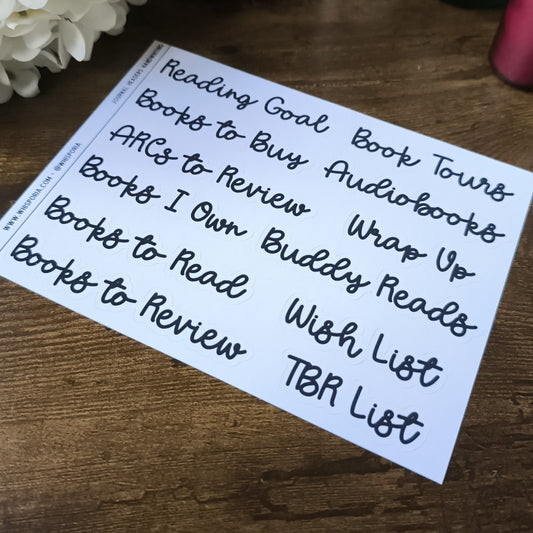 JOURNAL HEADERS
WWW.WHISPORIA.COM • @WHISPORIA
Reading Goal
Books to Buy
ARCs to Review
Books I Own
Books to Read
Books to Review
Book Tours
Audiobooks
Wrap Up
Buddy Reads
Wish List
TBR List